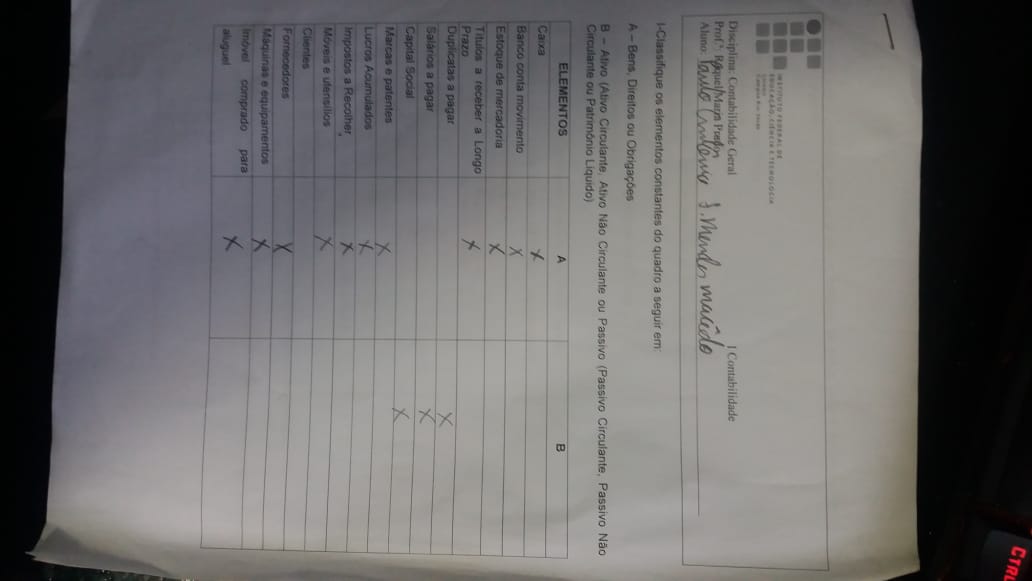 INSTITUTO FEDERAL DE
EDUCAÇÃO, CIÊNCIA E TECNOLOGIA
Disciplina: Contabilidade Geral | Contabilidade
Prof.ª: Raquel/Marta
Aluno: Paulo S. Mendes macêdo
I-Classifique os elementos constantes do quadro a seguir em:
A – Bens, Direitos ou Obrigações
B – Ativo (Ativo Circulante, Ativo Não Circulante ou Passivo (Passivo Circulante, Passivo Não
Circulante ou Patrimônio Líquido)
ELEMENTOS A B
Caixa X
Banco conta movimento X
Estoque de mercadoria X
Títulos a receber a Longo
Prazo X
Duplicatas a pagar X
Salários a pagar X
Capital Social X
Marcas e patentes X
Lucros Acumulados X
Impostos a Recolher X
Móveis e utensílios X
Clientes
Fornecedores X
Máquinas e equipamentos X
Imóvel comprado para
aluguel X
CTRL